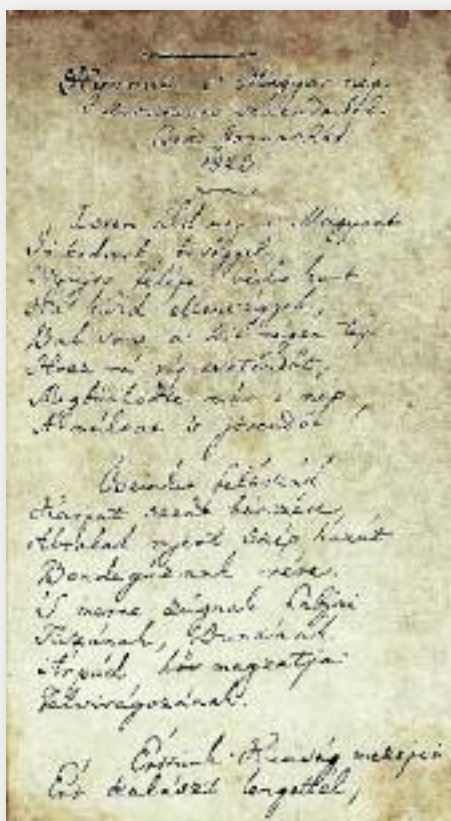 Hymnus a' Magyar nép
zivataros századaiból.
Cseke Januar 22d
1823.
Isten áldd meg a Magyart
Jó kedvvel, bőséggel,
Nyújts feléje védő kart
Ha küzd ellenséggel,
Bal sors a kit régen tép
Hozz rá víg esztendőt,
Megbűnhődte már e nép
A múltat 's jövendőt
Őseinket felhozád
Kárpát szent bérczére,
Általad nyert szép hazát
Bendegúznak vére.
'S merre zúgnak habjai
Tiszának, Dunának
Árpád hős magzatjai
Felvirágozának.
Értünk Kunság mezején
Ért kalászt lengettél,